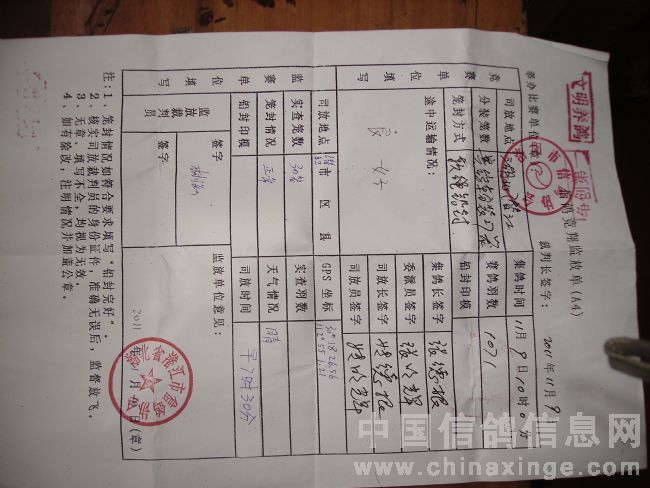 文明养鸽
举办比赛单位
信鸽竞翔监放单(A4)
裁判长签字：
2011年11月9日
竞赛单位填写
司放地点
集鸽时间
11月9日10时0分
分装笼数
赛鸽羽数
1071
笼封方式
铅封印模
途中运输情况：
良好
集鸽长签字
委派员签字
司放长签字
司放员签字
监赛单位填写
司放地点
市 区 县
GPS 坐标
30°18 26.56
112°55 1.21
实查笼数
30笼
实查羽数
笼封情况
正常
天气情况
晴
铅封印模
司放时间
早7时30分
监放裁判员
签字
签字
监放单位意见：
2011年11月 日(章)
注：1、笼封情况如符合要求填写“铅封完好”。
2、核实司放裁判员的身份证件，准确无误后，监督放飞。
3、无章、填写不全，均视为无效。
4、如有涂改，注明情况并加盖公章。
中国信鸽信息网
www.chinaxinge.com